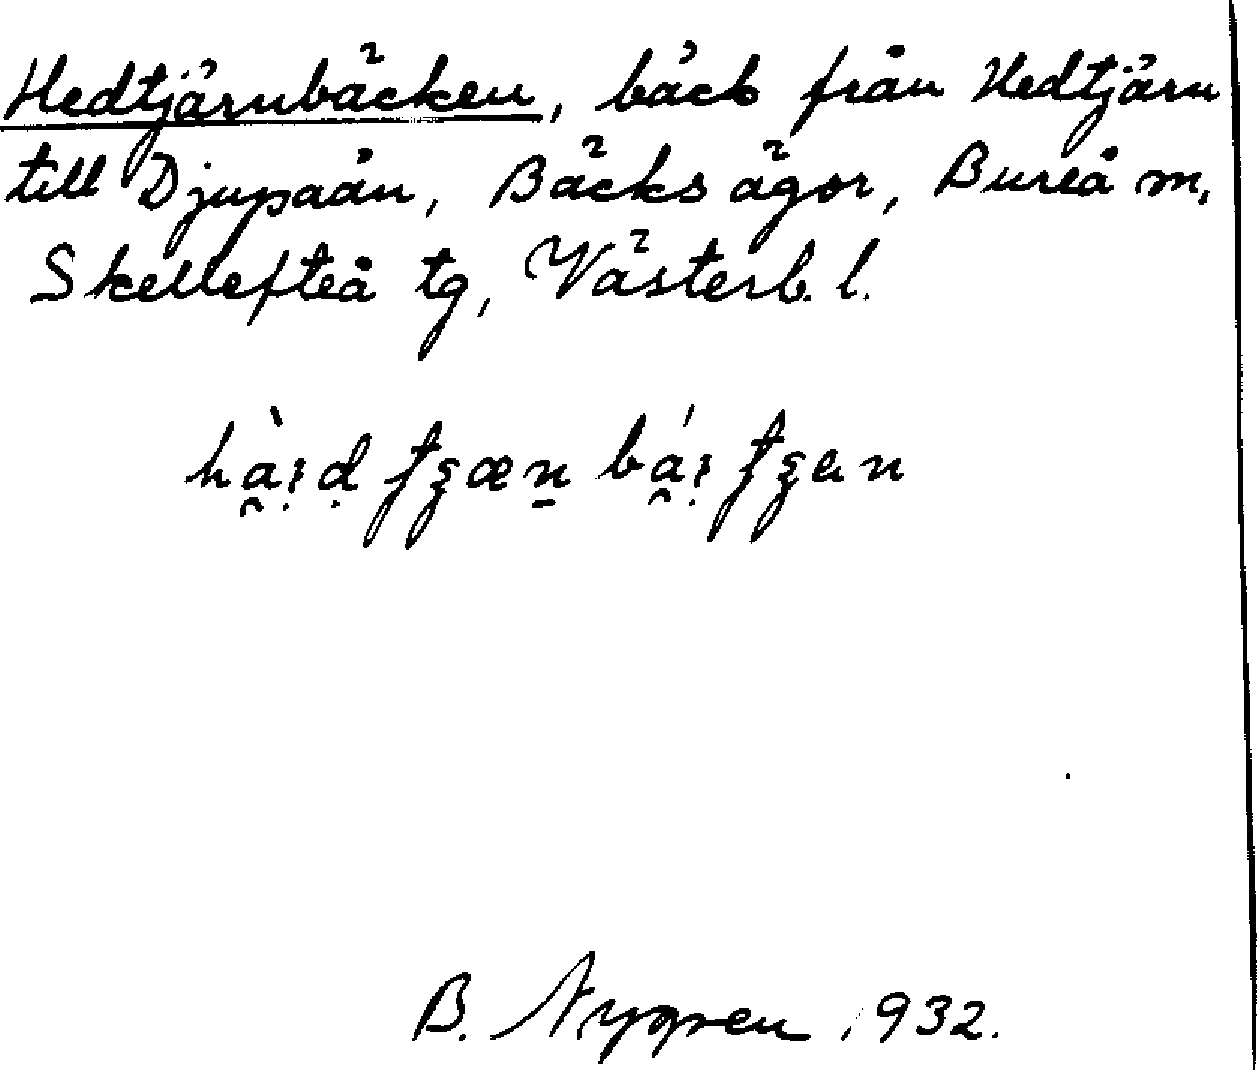 Hedtjärnbäcken, bäck från Hedtjärn
till Djupaån, Bäcks ägor, Bureå m,
Skellefteå tg, Västerb. l.
B. Nygren 1932.